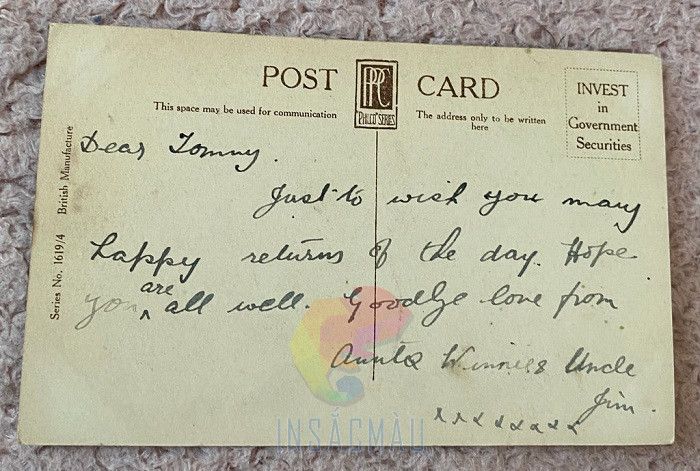 POST CARD
PPC
"PHILCO" SERIES
INVEST
in
Government
Securities
This space may be used for communication
The address only to be written
here
Series No. 1619/4 British Manufacture
Dear Tommy.
Just to wish you many
happy returns of the day. Hope
you are all well. Goodbye love from
Winnie & Uncle
Jim.
x x x x x x x x
INSẮCMÀU